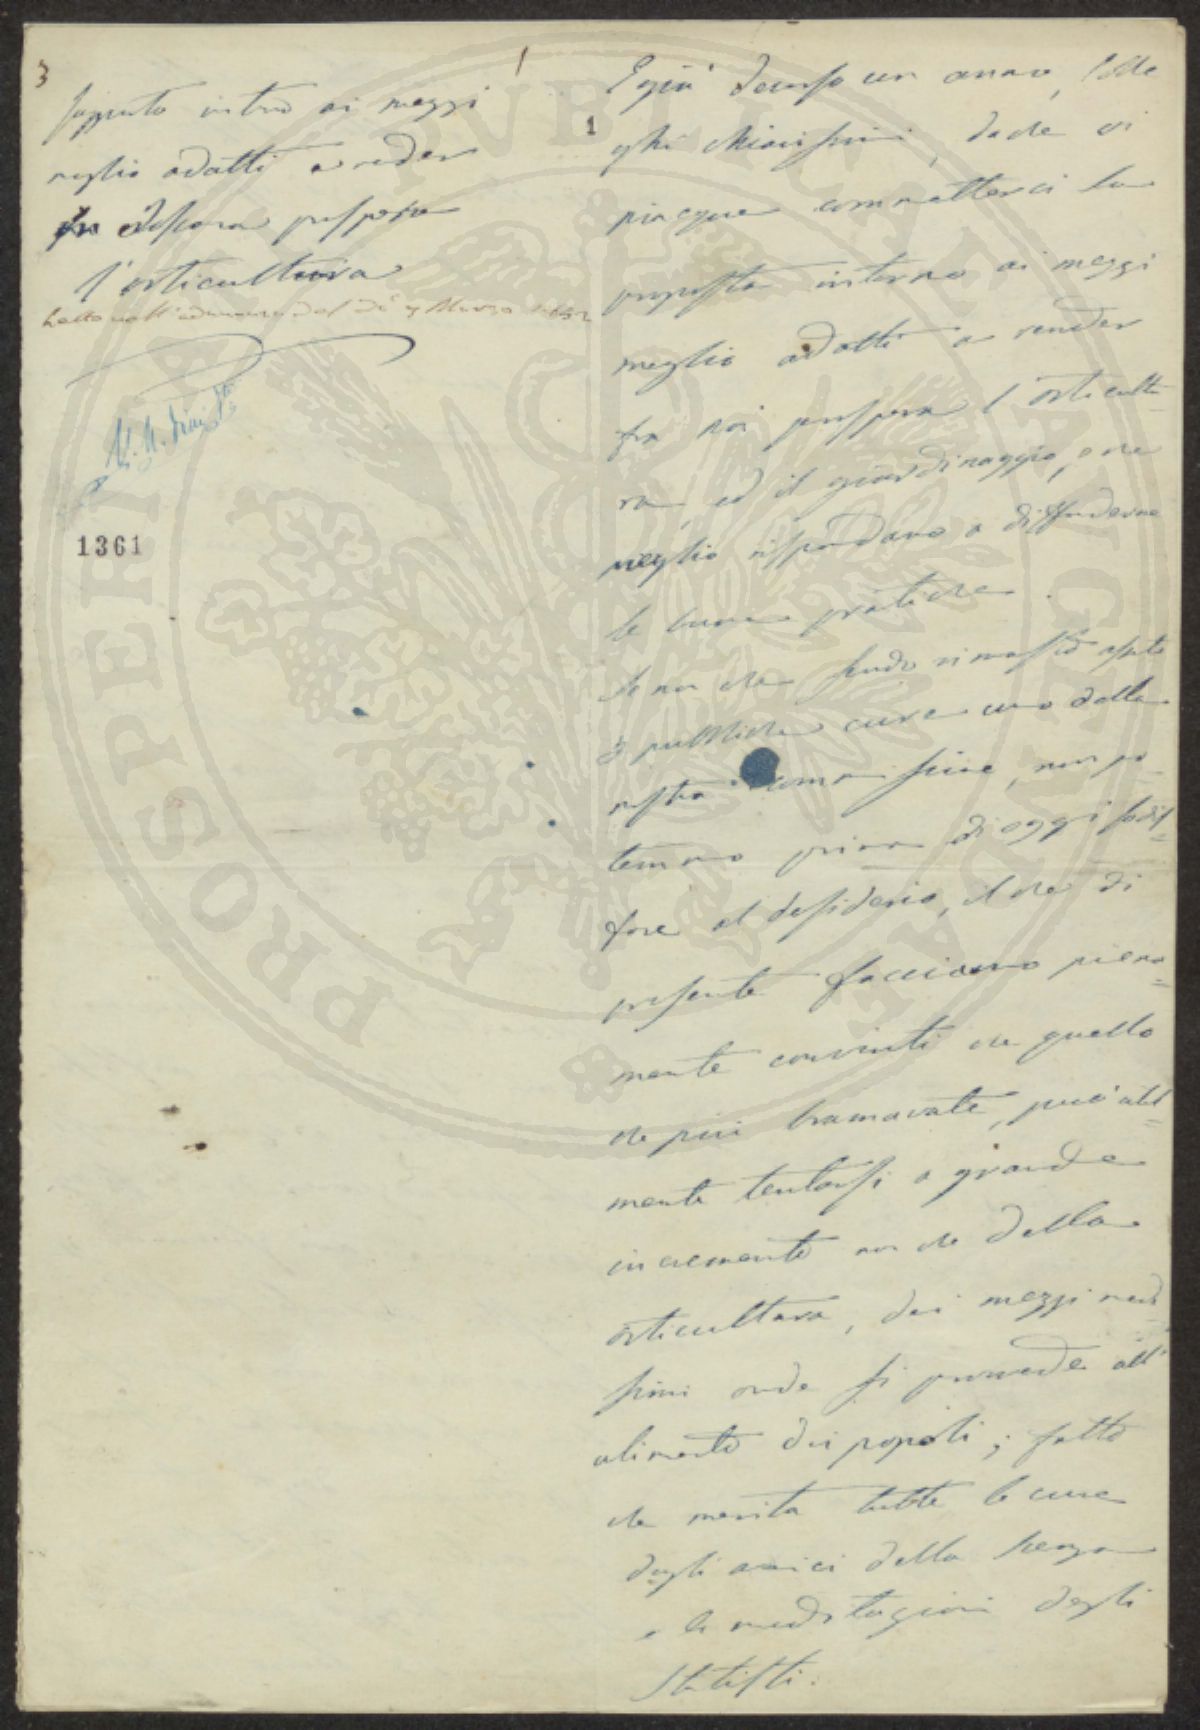 3
1
Rapporto intorno ai mezzi
meglio adatti a render
fra Toscana prospera
l'orticultura
Letto nell'adunanza del dì 7 Marzo
1361
1
E già decorso un anno, Colle
ghi chiarissimi, da che vi
piacque commetterci la
proposta intorno ai mezzi
meglio adatti a render
fra noi prospera l'orticultu-
ra, ed il giardinaggio, e che
meglio rispondano a diffonderne
le buone pratiche.
Se non che sendo rimasto
a pubbliche cure uno della
nostra commissione, non po-
temmo prima di oggi sodisf=
fare al desiderio, il che di
presente facciamo piena=
mente convinti che quello
che più bramavate, può util=
mente tentarsi a grande
incremento non che della
orticultura, dei mezzi
onde si provvede all'
alimento dei popoli; fatto
che merita tutte le cure
degli amici della scienza
e le meditazioni degli
Statisti.
PROSPERITÀ PUBBLICA AUGE